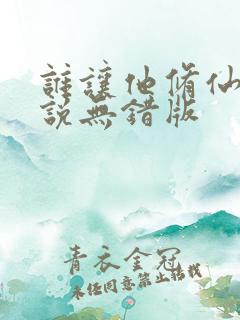 誰讓他脩仙
說無錯版
青衣金冠
未經同意禁止搭載